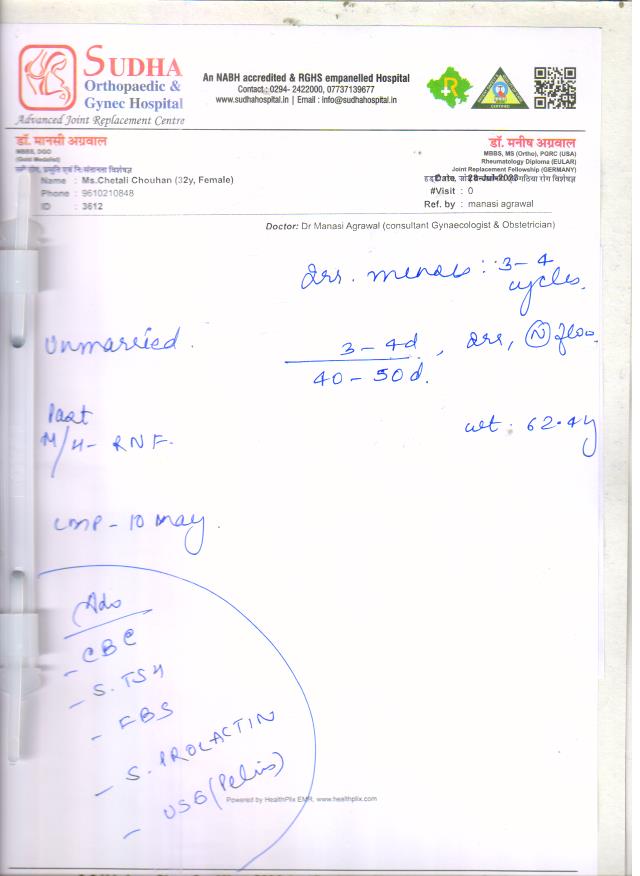 SUDHA
Orthopaedic &
Gynec Hospital
Advanced Joint Replacement Centre
An NABH accredited & RGHS empanelled Hospital
Contact : 0294- 2422000, 07737139677
www.sudhahospital.in | Email : info@sudhahospital.in
डॉ. मानसी अग्रवाल
MBBS, DGO
(Gold Medalist)
स्त्री रोग, प्रसुति एवं निःसंतानता विशेषज्ञ
डॉ. मनीष अग्रवाल
MBBS, MS (Ortho), PGRC (USA)
Rheumatology Diploma (EULAR)
Joint Replacement Fellowship (GERMANY)
Name : Ms.Chetali Chouhan (32y, Female)
Phone : 9610210848
ID : 3612
#Visit : 0
Ref. by : manasi agrawal
Doctor: Dr Manasi Agrawal (consultant Gynaecologist & Obstetrician)
Irr. menses : 3-4
cycles.
Unmarried.
3-4d , Irr, (N) flow.
40-50d.
Past
M/H- RNF.
wt : 62.4
LMP - 10 May.
Adv
- CBC
- S. TSH
- FBS
- S. PROLACTIN
- USG (Pelvis)
Powered by HealthPlix EMR, www.healthplix.com